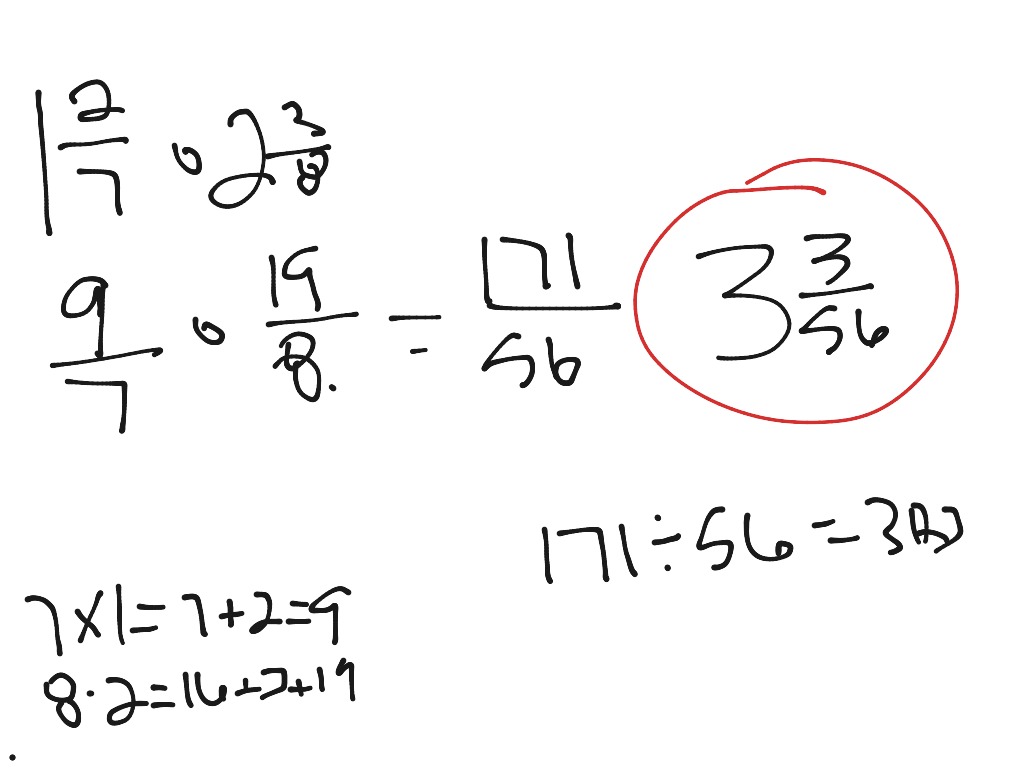 1 2/7 · 2 3/8
9/7 · 19/8 = 171/56 3 3/56
171 ÷ 56 = 3 R3
7 x 1 = 7 + 2 = 9
8 · 2 = 16 + 3 + 19